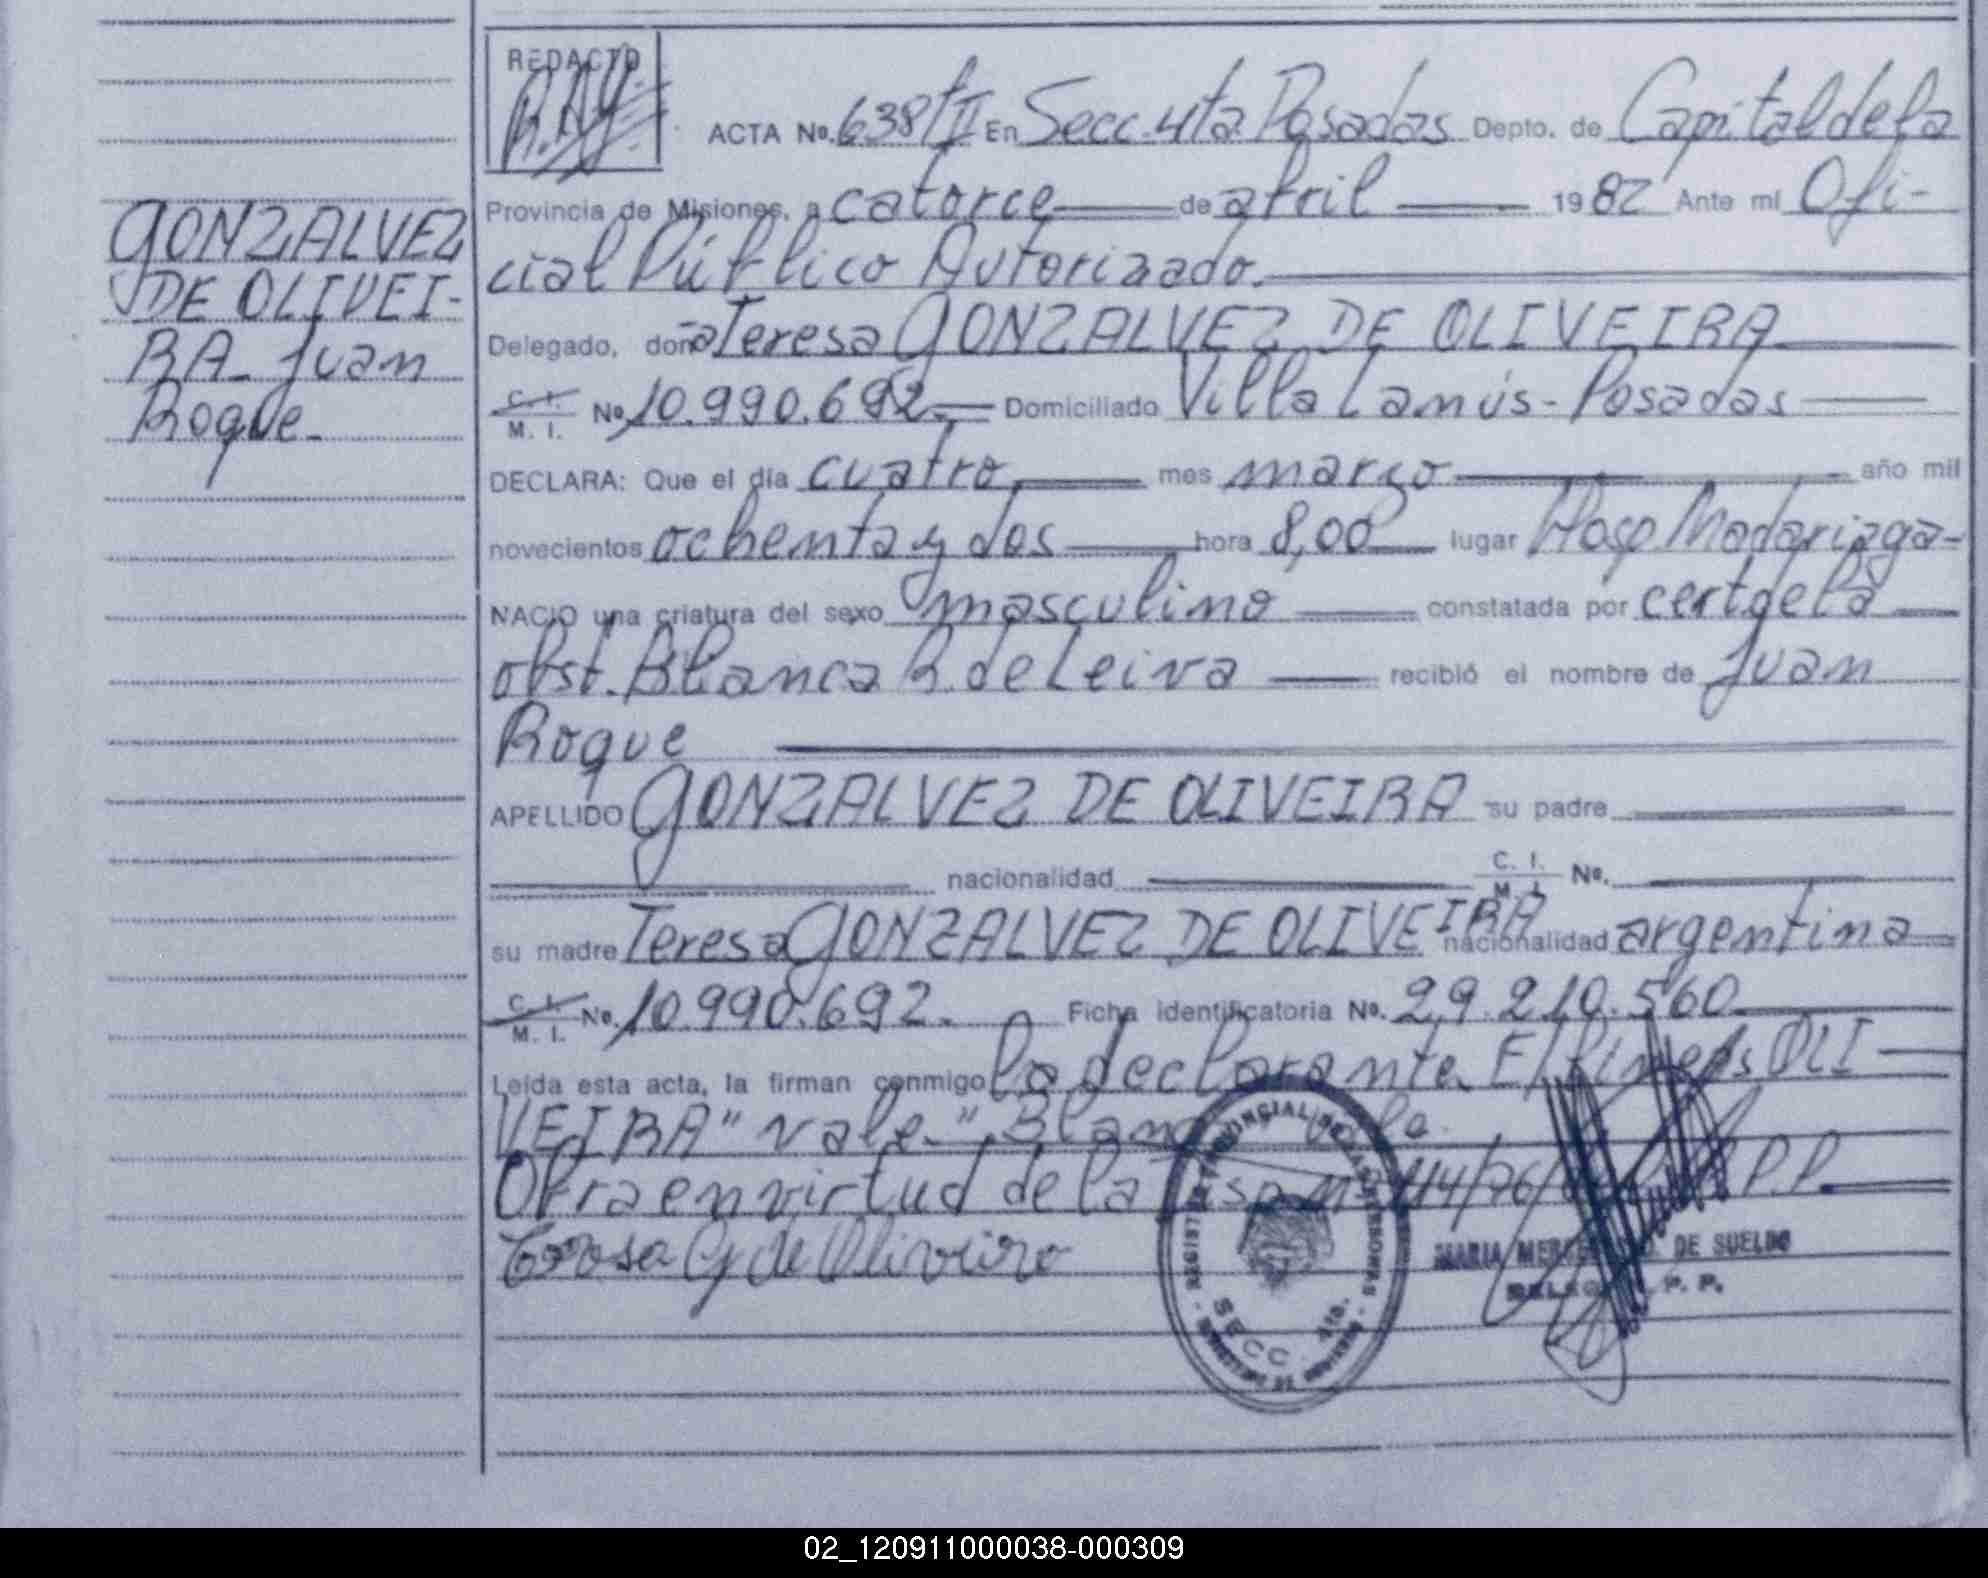 REDACTO
ACTA Nº. 638 t II En Secc. 4ta. Posadas Depto. de Capital de la
Provincia de Misiones, a catorce de abril 1982 Ante mi Ofi-
cial Público Autorizado.
Delegado, doña Teresa GONZALVEZ DE OLIVEIRA
C. I. M. I. Nº 10.990.692. Domiciliado Villa Lanús - Posadas
DECLARA: Que el día cuatro mes marzo año mil
novecientos ochenta y dos hora 8,00 lugar Hosp. Madariaga-
NACIO una criatura del sexo masculino constatada por cert de la
obst. Blanca R. de Leiva recibió el nombre de Juan
Roque
APELLIDO GONZALVEZ DE OLIVEIRA su padre
nacionalidad C. I. M. I. Nº.
su madre Teresa GONZALVEZ DE OLIVEIRA nacionalidad argentina
C. I. M. I. Nº. 10.990.692. Ficha identificatoria Nº. 29.210.560
Leída esta acta, la firman conmigo la declarante. E/líneas OLI
VEIRA" vale.
Obra en virtud de la P.P.
Teresa G de Oliveira
DE SUELDO
P. P.
SECC. 4ta.
GONZALVEZ
DE OLIVEI-
RA Juan
Roque
02_120911000038-000309